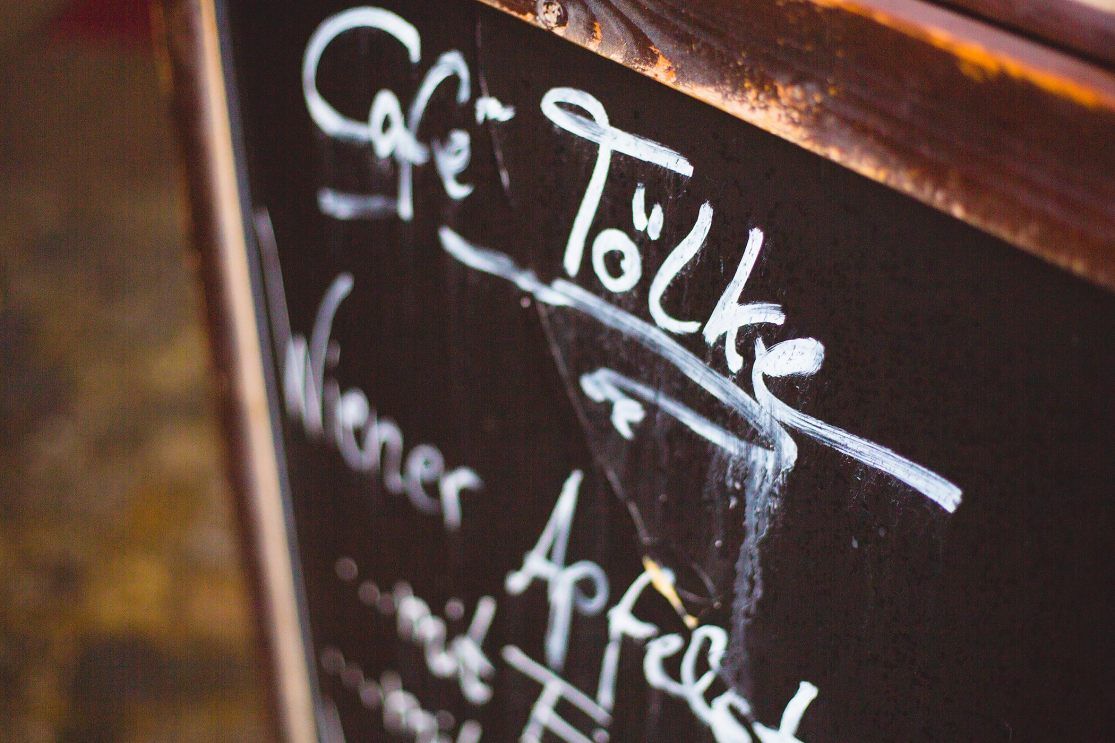 Café Tölke
Wiener Apfelst
... mit
...